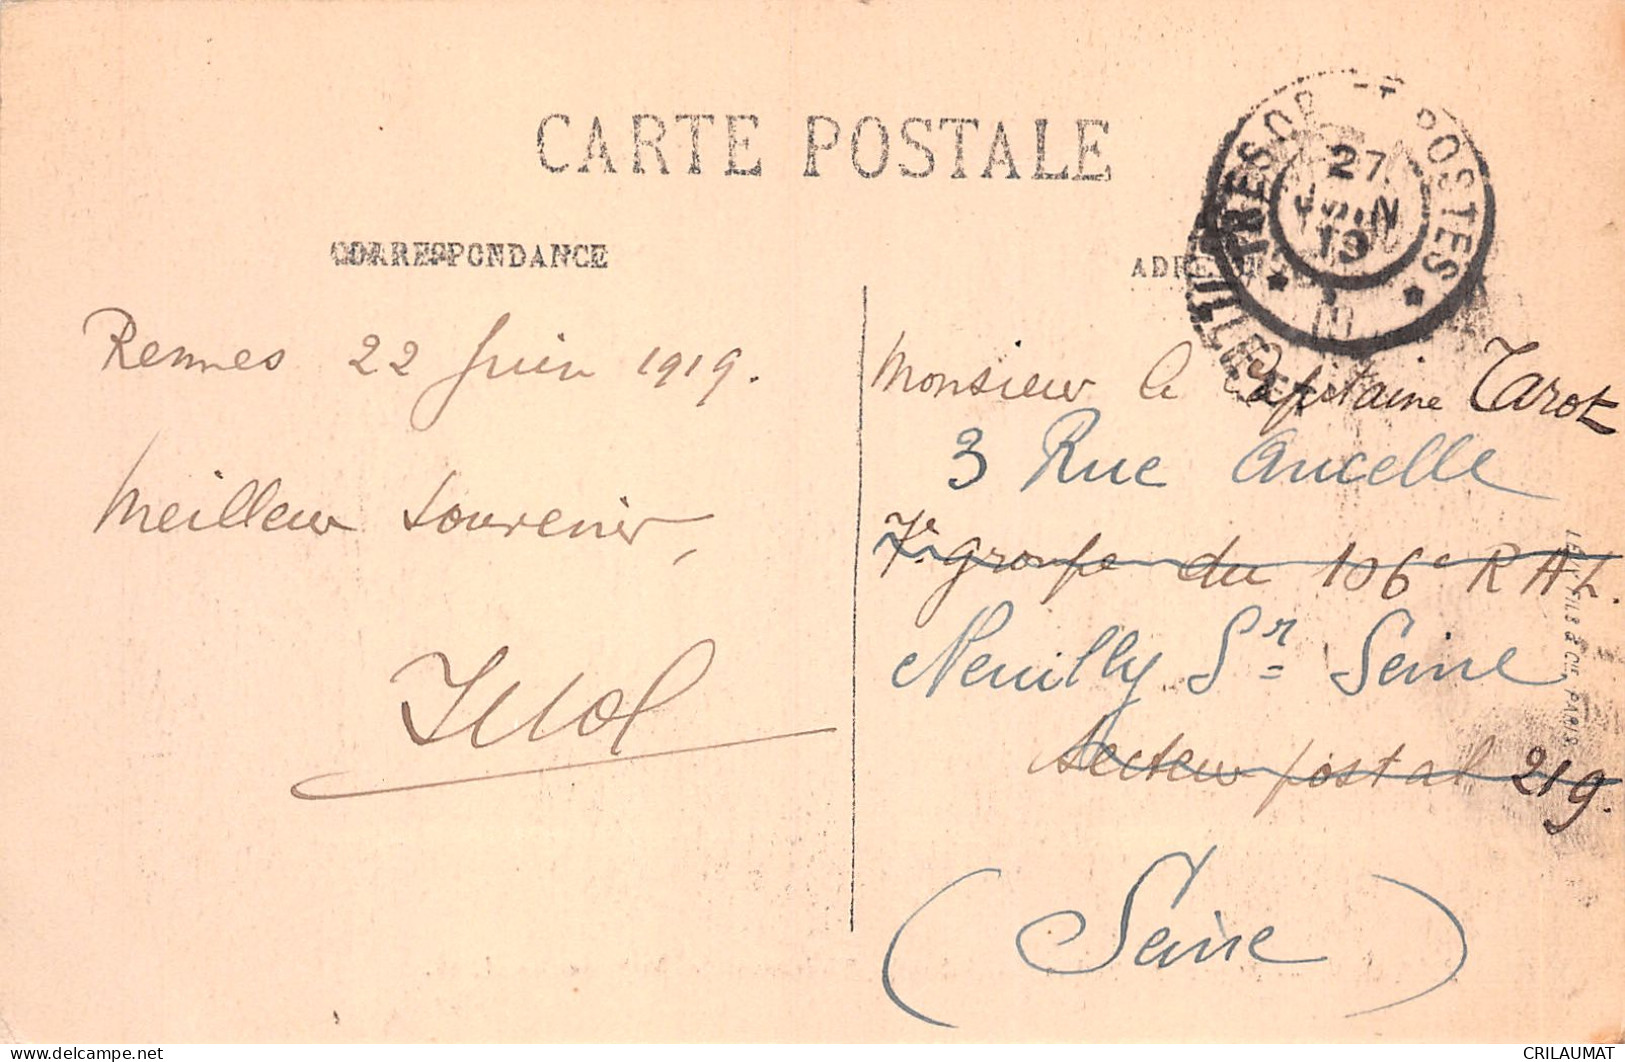 CARTE POSTALE
CORRESPONDANCE
Rennes 22 Juin 1919.
Meilleur souvenir,
TRESOR ET POSTES
27
JUIN
19
Monsieur le Capitaine Tarot
3 Rue Ancelle
7e groupe du 106e R A L.
Neuilly Sr Seine
Secteur postal 219.
(Seine)
LEVY FILS & CIE, PARIS
delcampe.net
CRILAUMAT